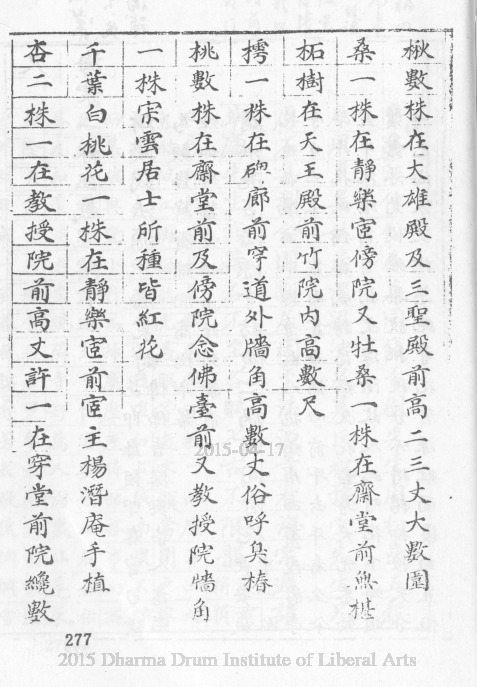 楸數株在大雄殿及三聖殿前高二三丈大數圍
桑一株在靜樂宧傍院又牡桑一株在齋堂前無椹
柘樹在天王殿前竹院内高數尺
樗一株在廊前穿道外牆角高數丈俗呼臭椿
桃數株在齋堂前及傍院念佛臺前又教授院牆角
一株宗雲居士所種皆紅花
千葉白桃花一株在靜樂宧前宧主楊潛庵手植
杏二株一在教授院前高丈許一在穿堂前院纔數
277
2015-04-17
2015 Dharma Drum Institute of Liberal Arts